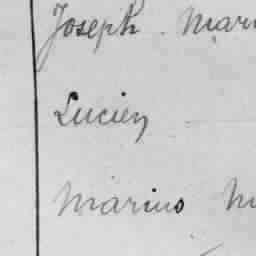 Joseph. Mari
Lucien
Marius M